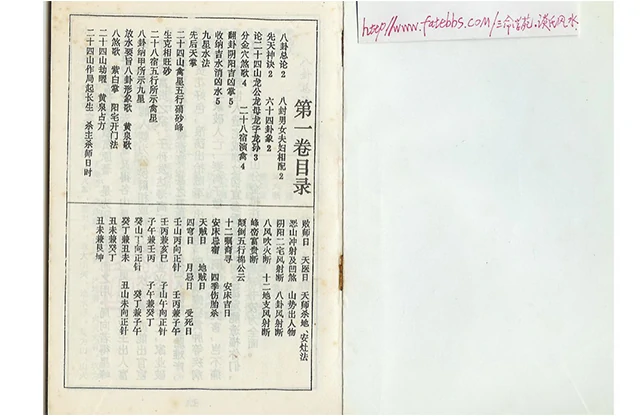 http://www.fatebbs.com/三命
第一卷目录
八卦总论2　八封男女夫妇相配2
先天神诀2　六十四卦象2
论二十四山龙公龙母龙子龙孙3
分金穴煞歌4　二十八宿演禽4
翻卦阴阳吉凶掌5
收纳吉水消凶水5
九星水法
先后天掌
二十四山禽星五行硝砂峰
生克相旺砂
二十八宿五行所示禽星
八卦纳甲所示九星
放水要旨八卦形象歌　黄泉歌
八煞歌　紫白掌　阳宅开门法
二十四山劫煞　黄泉占方
二十四山作局起长生　杀主杀师日时
败师日　天医日　天师杀地　安灶法
恶山冲射及凹煞　山势出人物
阴阳二宅风射断　八卦风射断
八风吹火断　十二地支风射断
峰峦富贵断
颠倒五行杨公云
十二嘱商寻　安床吉日
安床忌宿　四季伤胎杀
天贼日　地贼日
四穷日　月忌日　受死日
壬山丙向正针　壬丙兼子午
壬丙兼亥巳　子山午向正针
子午兼壬丙　子午兼癸丁
癸山丁向正针　癸丁兼子午
癸丁兼丑未　丑山未向正针
丑未兼癸丁
丑未兼艮坤